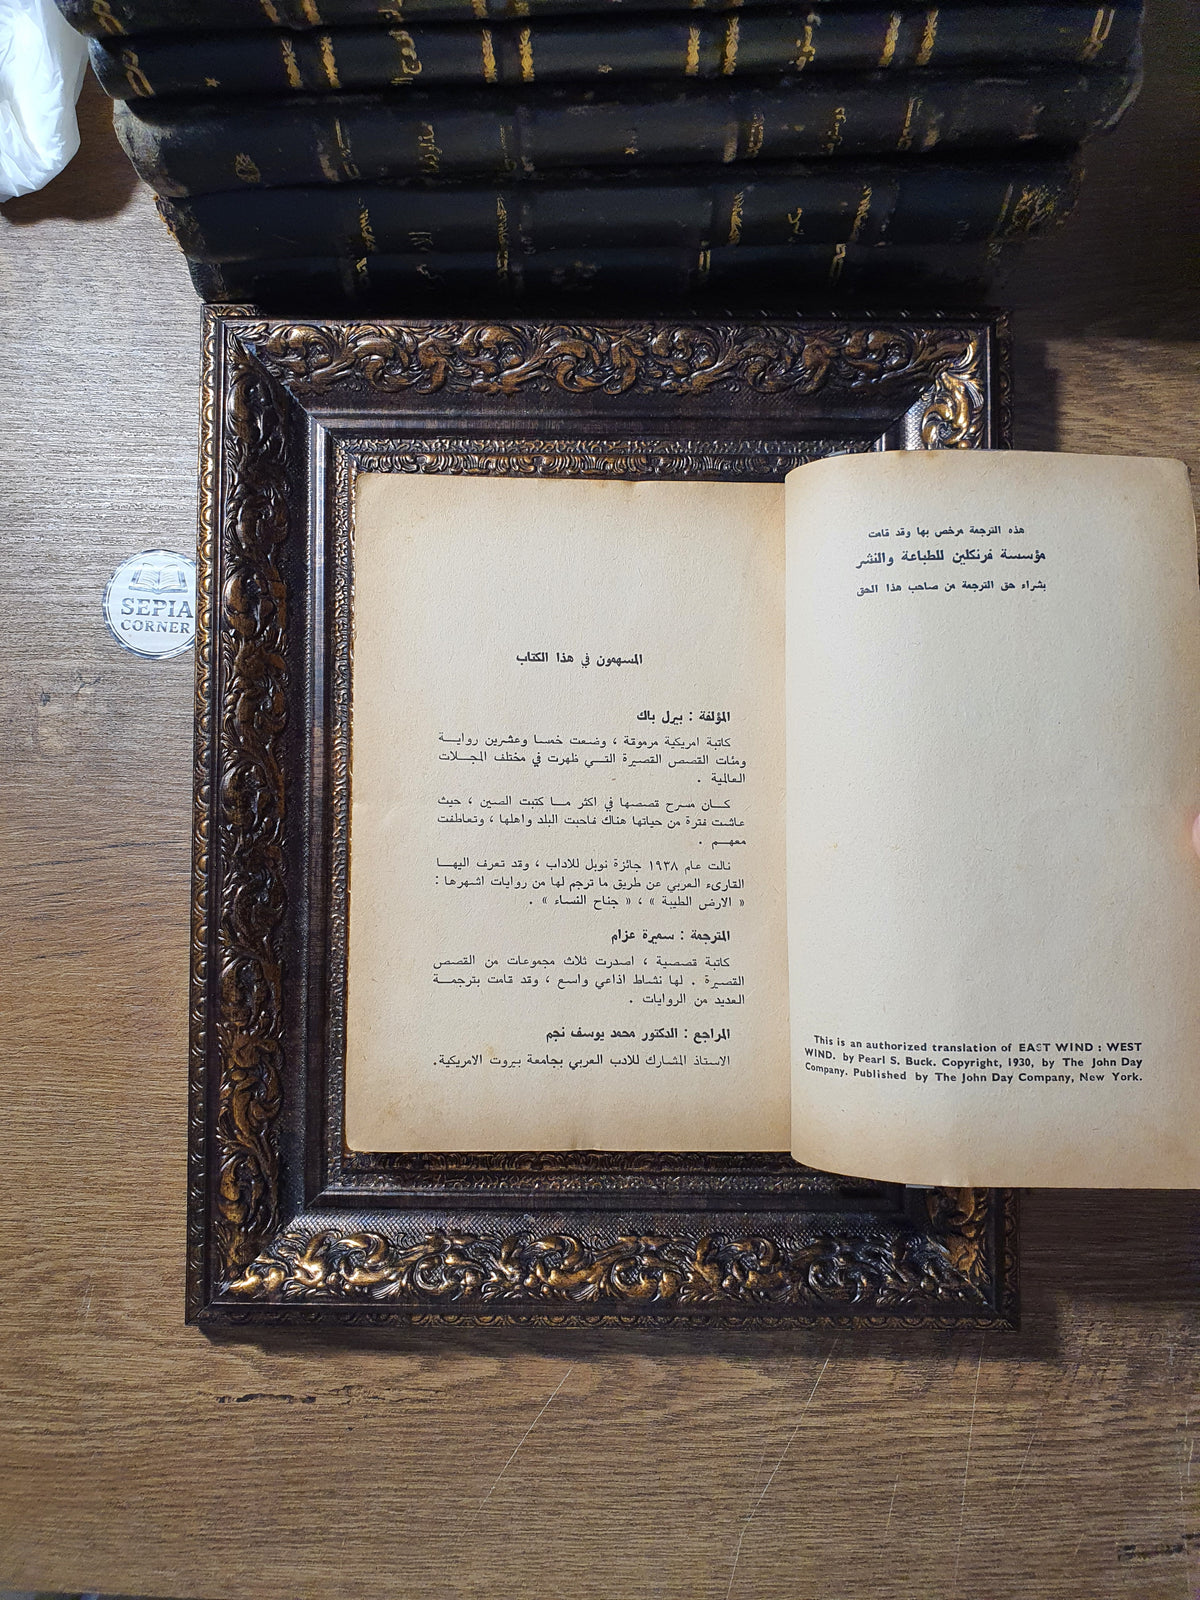 SEPIA
CORNER
هذه الترجمة مرخص بها وقد قامت
مؤسسة فرنكلين للطباعة والنشر
بشراء حق الترجمة من صاحب هذا الحق
This is an authorized translation of EAST WIND : WEST
WIND. by Pearl S. Buck. Copyright, 1930, by The John Day
Company. Published by The John Day Company, New York.
المسهمون في هذا الكتاب
المؤلفة : بيرل باك
كاتبة امريكية مرموقة ، وضعت خمسا وعشرين روايـــة
ومئات القصص القصيرة التـــي ظهرت في مختلف المجـــلات
العالمية .
كـــان مسرح قصصها في اكثر مـــا كتبت الصين ، حيث
عاشت فترة من حياتها هناك فاحبت البلد واهلها ، وتعاطفت
معهـــم .
نالت عام ١٩٣٨ جائزة نوبل للاداب ، وقد تعرف اليهـــا
القارىء العربي عن طريق ما ترجم لها من روايات اشهرها :
« الارض الطيبة » ، « جناح النساء » .
المترجمة : سميرة عزام
كاتبة قصصية ، اصدرت ثلاث مجموعات من القصص
القصيرة . لها نشاط اذاعي واسع ، وقد قامت بترجمـــة
العديد من الروايات .
المراجع : الدكتور محمد يوسف نجم
الاستاذ المشارك للادب العربي بجامعة بيروت الامريكية.